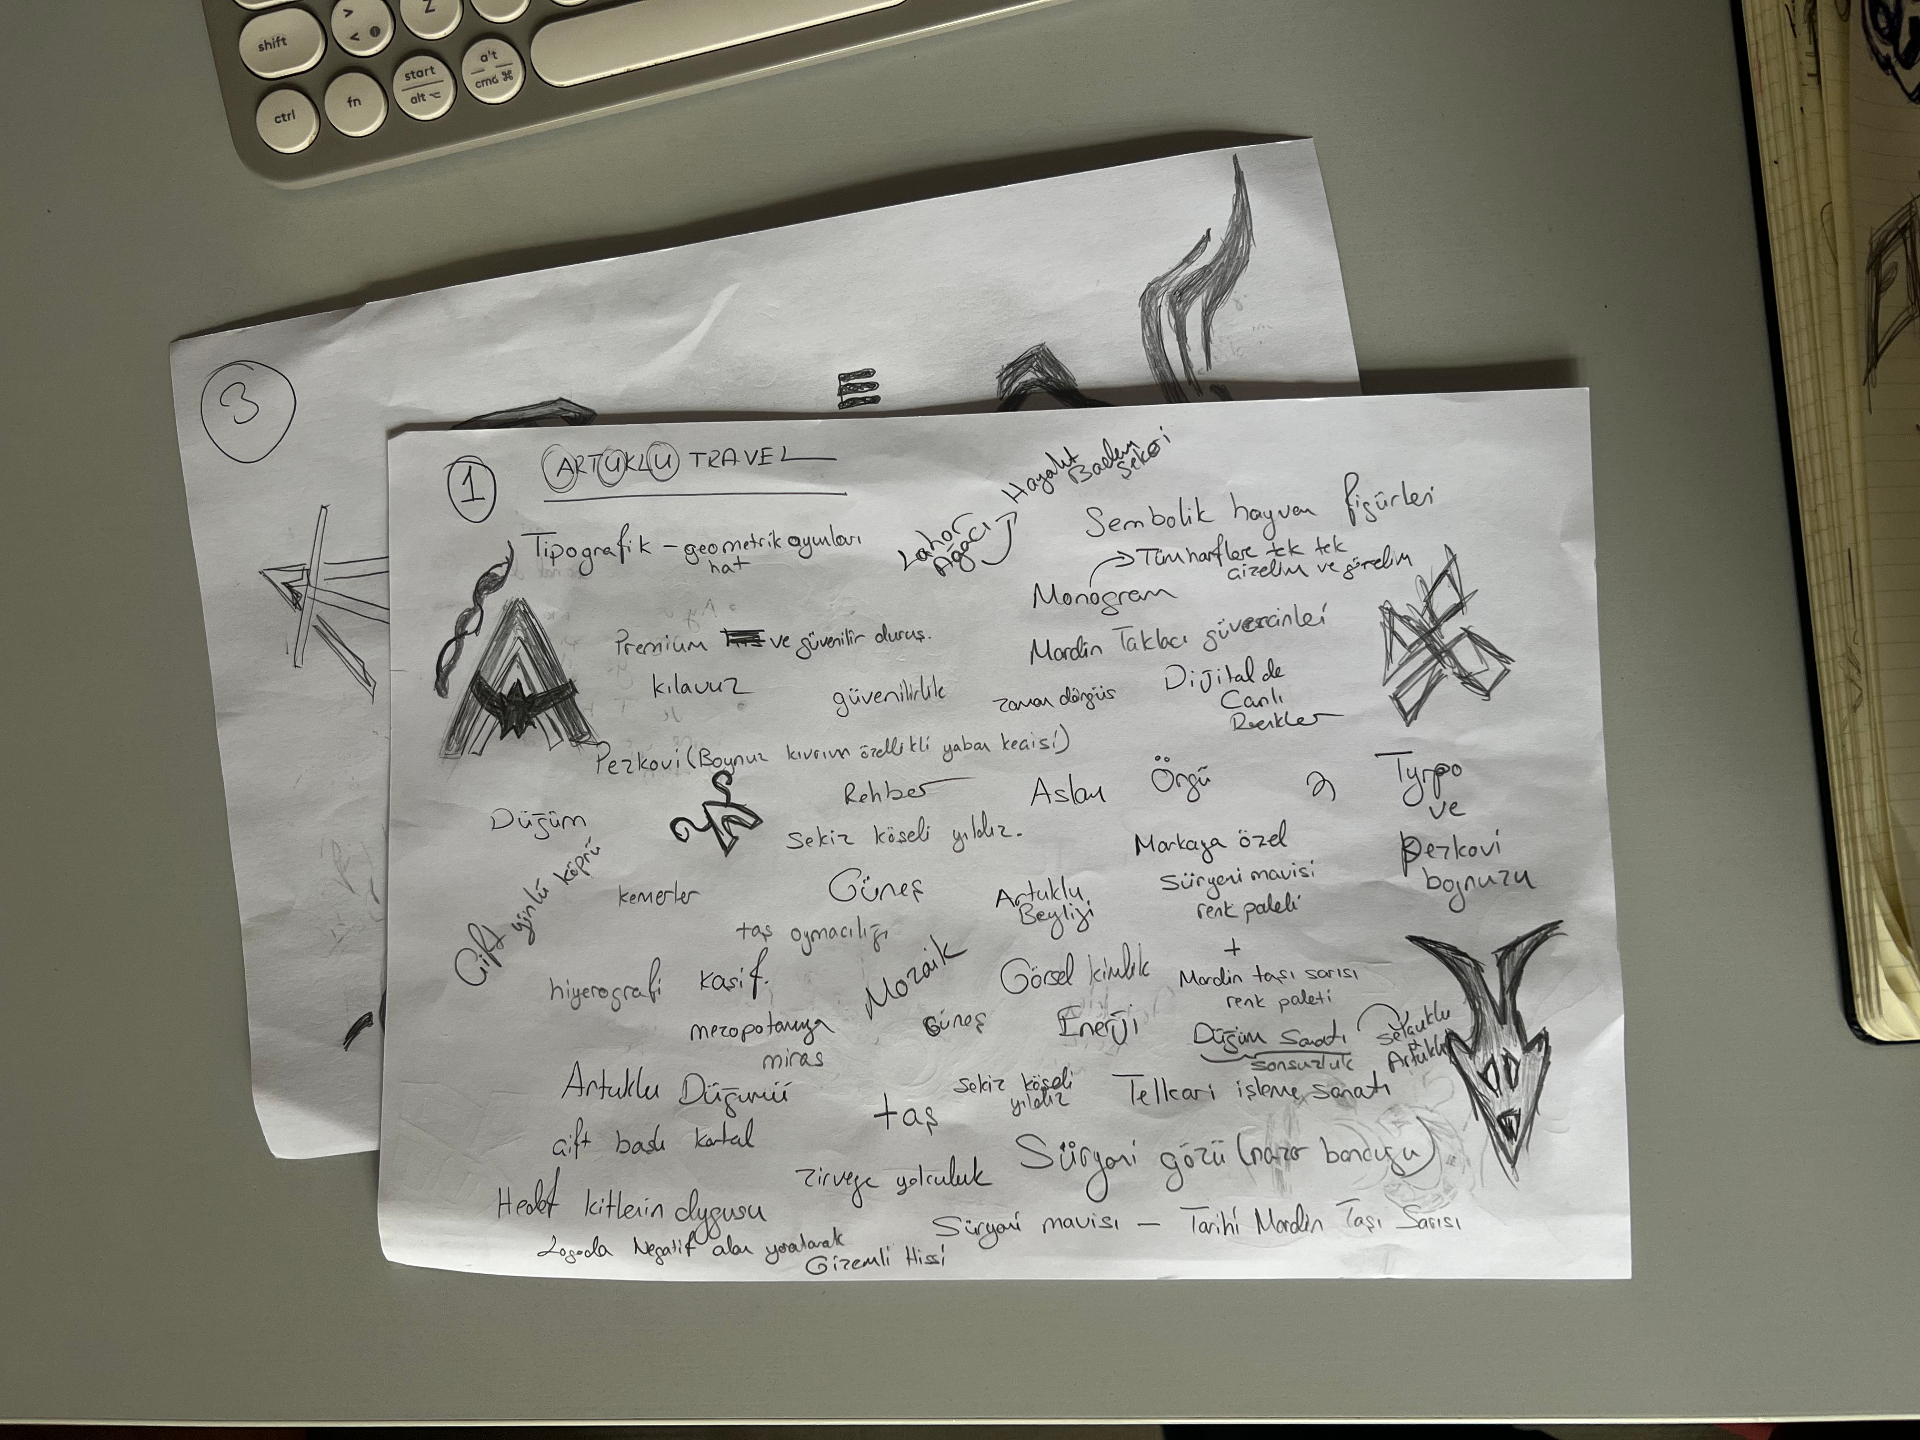 shift
> < 
Z
ctrl
fn
start
alt
alt
cmd ⌘
3
E
1
ARTUKLU TRAVEL
Hayalet Badem Şekeri
Lahor Ağacı
Sembolik hayvan figürleri
Tipografik - geometrik oyunları
hat
Tüm harflere tek tek
çizelim ve görelim
Monogram
Premium ve güvenilir duruş.
Mardin Taklacı güvercinleri
kılavuz
güvenilirlik
zaman döngüs
Dijital de
Canlı
Renkler
Pezkovi (Boynuz kıvrım özellikli yaban keçisi)
Rehber
Aslan
Örgü
Typo
ve
Pezkovi
boynuzu
Düğüm
Sekiz köşeli yıldız.
Markaya özel
Süryani mavisi
renk paleti
+
Mardin taşı sarısı
renk paleti
Çift yönlü köprü
kemerler
Güneş
Artuklu
Beyliği
taş oymacılığı
hiyerografi
kaşif.
Mozaik
Görsel kimlik
mezopotamya
miras
Güneş
Enerji
Düğüm Sanatı
sonsuzluk
Selçuklu
Artuklu
Artuklu Düğümü
taş
Sekiz köşeli
yıldız
Telkari işleme sanatı
çift başlı kartal
zirveye yolculuk
Süryani gözü (nazar boncuğu)
Hedef kitlerin dygusu
Süryani mavisi - Tarihi Mardin Taşı Sarısı
Logoda Negatif alan yaratarak
Gizemli Hissi